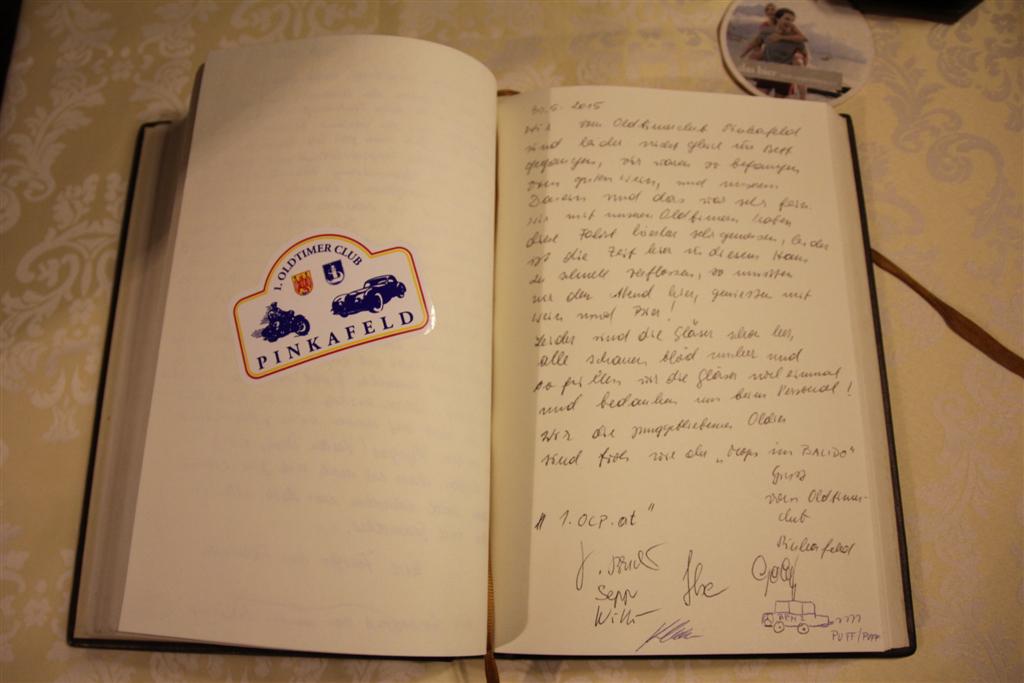 1. OLDTIMER CLUB
PINKAFELD
30.5.2015
Wir vom Oldtimerclub Pinkafeld
sind leider nicht gleich ins Bett
gegangen, wir waren so befangen
vom guten Wein, und unserem
Dasein und das war sehr fein.
Wir mit unseren Oldtimern haben
diese Fahrt hierher sehr genossen, leider
ist die Zeit hier in diesem Haus
zu schnell verflossen, so mussten
wir den Abend hier, geniessen mit
Wein und Bier!
Leider sind die Gläser schon leer,
alle schauen blöd umher und
so füllen wir die Gläser noch einmal
und bedanken uns beim Personal!
Wir die junggebliebenen Oldies
sind froh wie der „Mops im
Gruß
vom Oldtimer-
club
Pinkafeld
"1.OCP.at"
Sepp
Willi
PUFF/PUFF